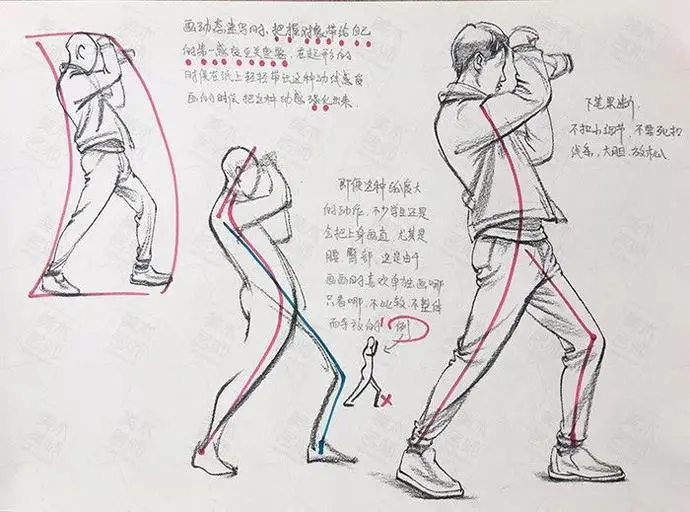 画动态速写时,把握对象带给自己
的第一感授至关重要,在起形的
时候在纸上轻轻带出这种动线感觉
画的时候把这种动感强化出来
下笔果断,
不抠小细节,不要死抠
线条,大胆,放松
即便这种幅度大
的动作,不少皆且还是
会把上身画直,尤其是
腰臀部,这是由于
画画时喜欢单独画哪
只看哪,不比较,不整体
而导致的!例